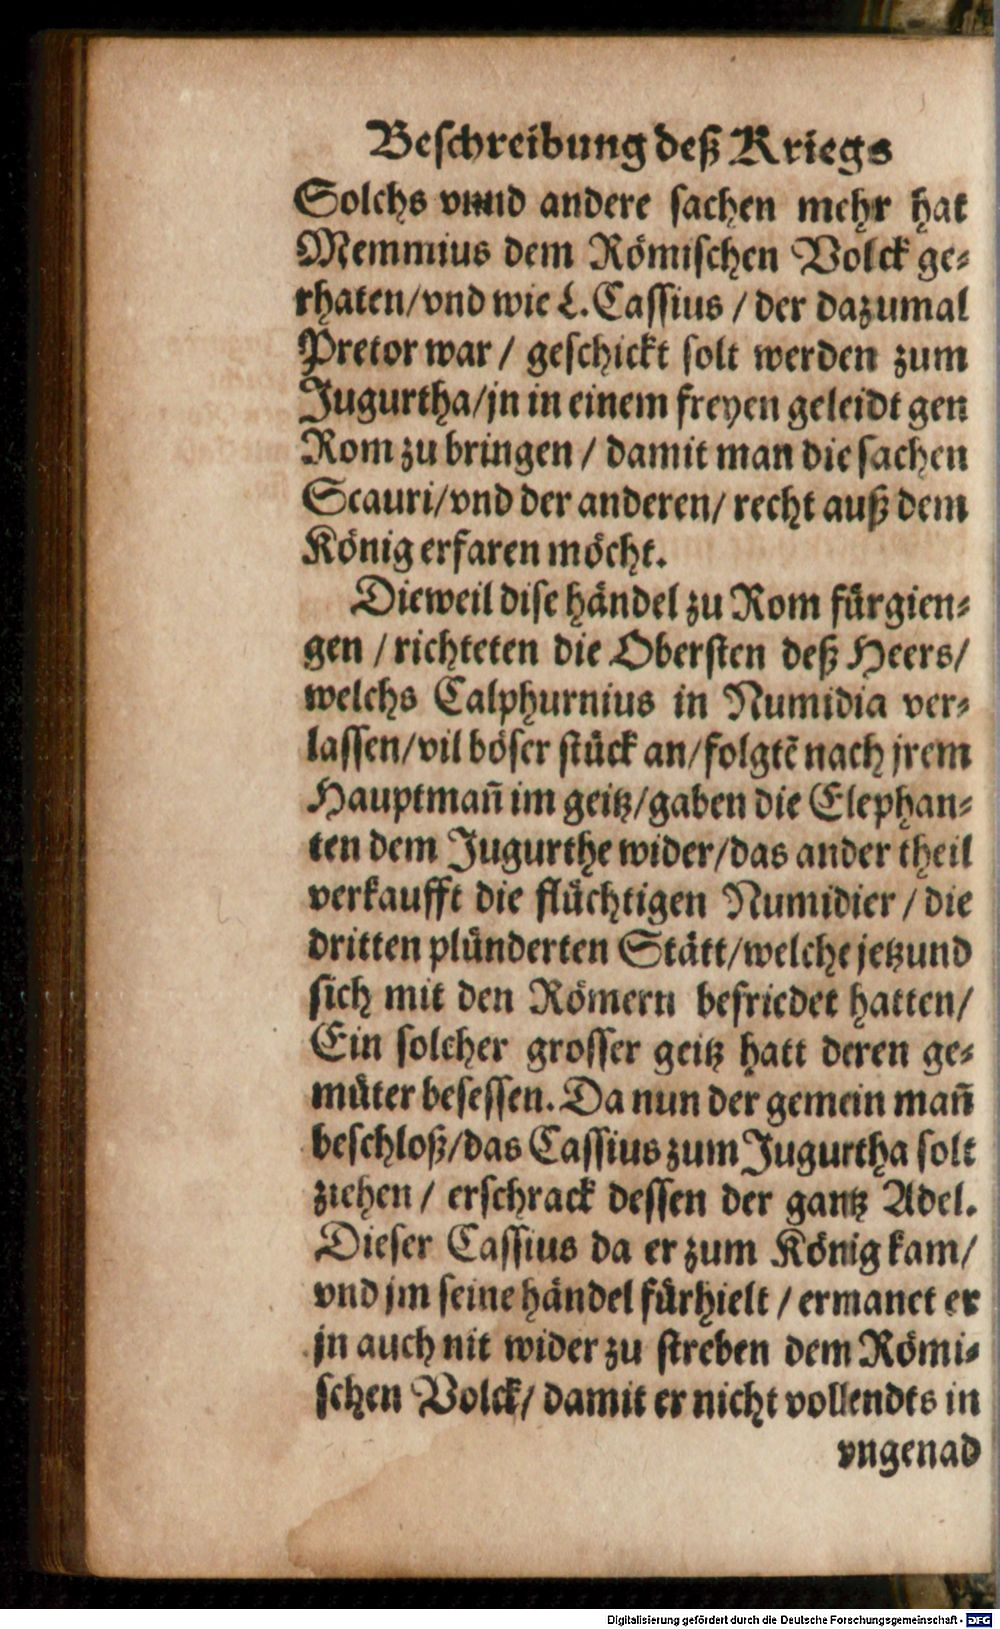 Beschreibung deß Kriegs
Solchs vnnd andere sachen mehr hat
Memmius dem Römischen Volck ge-
rhaten/vnd wie L. Cassius / der dazumal
Pretor war / geschickt solt werden zum
Jugurtha/jn in einem freyen geleidt gen
Rom zu bringen / damit man die sachen
Scauri/vnd der anderen/ recht auß dem
König erfaren möcht.
Dieweil dise händel zu Rom fürgien-
gen / richteten die Obersten deß Heers/
welchs Calphurnius in Numidia ver-
lassen/vil böser stück an/folgtē nach jrem
Hauptmañ im geitz/gaben die Elephan-
ten dem Jugurthe wider/das ander theil
verkaufft die flüchtigen Numidier / die
dritten plünderten Stätt/welche jetzund
sich mit den Römern befriedet hatten/
Ein solcher grosser geitz hatt deren ge-
müter besessen. Da nun der gemein mañ
beschloß/das Cassius zum Jugurtha solt
ziehen / erschrack dessen der gantz Adel.
Dieser Cassius da er zum König kam/
vnd jm seine händel fürhielt / ermanet er
jn auch nit wider zu streben dem Römi-
schen Volck/ damit er nicht vollendts in
vngenad
Digitalisierung gefördert durch die Deutsche Forschungsgemeinschaft - DFG